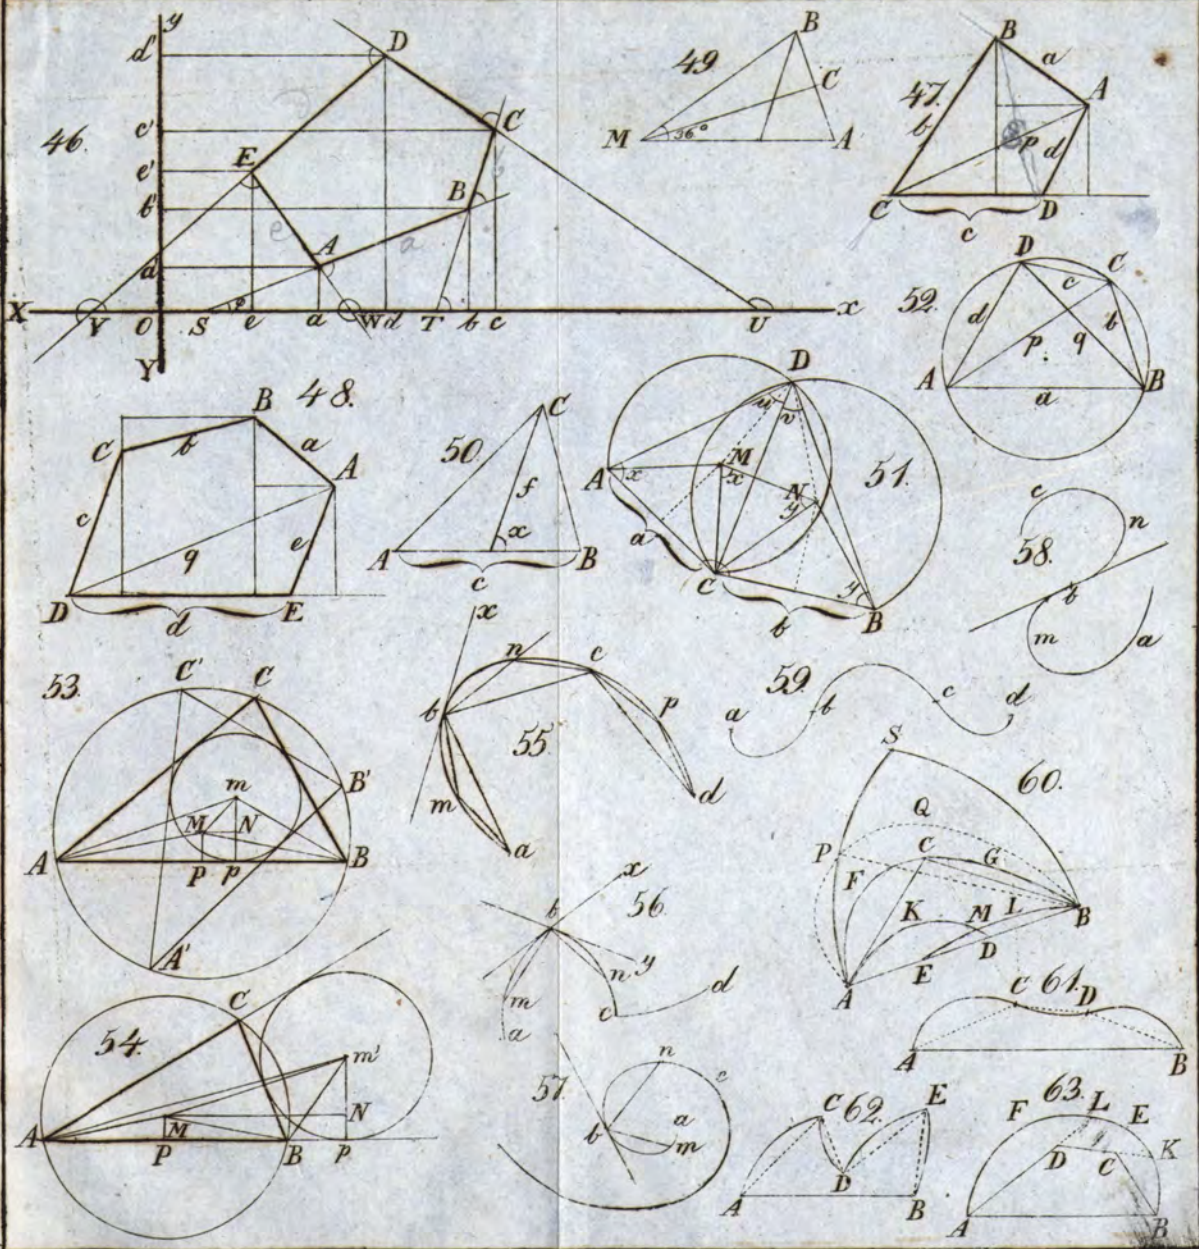 46.
y
d'
c'
e'
b'
a'
X V O S φ e a W d T b c U x
Y
D
C
E
B
A
e a
49.
B
C
M 36° A
47.
B
a
A
b
p
d
C D
c
52.
D C
c
d b
p. q
A B
a
48.
B
C b a
A
c
q e
D E
d
50.
C
f
x
A B
c
51.
D
u v
A x M
x N
y
a
C y
b B
58.
c
n
b
m a
53.
C' C
B'
m
M N
A P p B
A'
55
x
n c
b
p
m d
a
59.
a b c d
60.
S
Q
P C G
F
K M L B
E D
A
56.
x
b
y
m n d
a c
61.
C D
A B
54.
C
m'
N
M
A P B p
57.
n c
a
b m
62.
C E
D
A B
63.
F L E
K
D C
A B